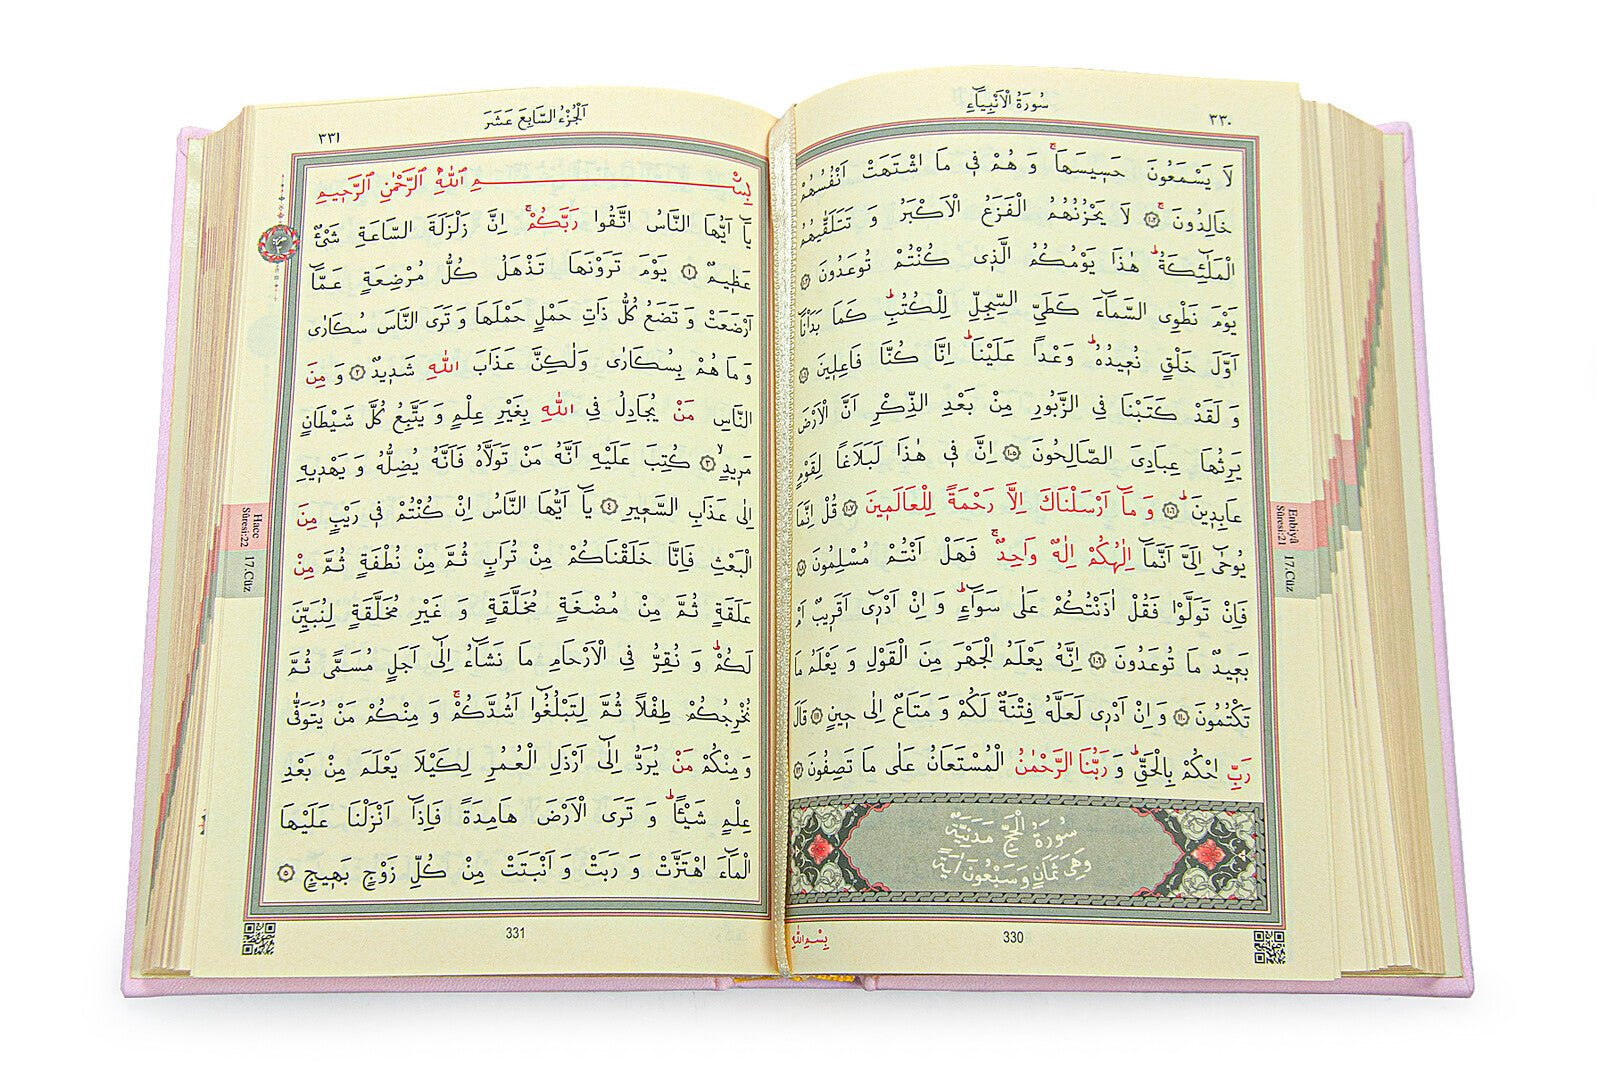 سُورَةُ الْاَنْبِيَاءِ
٣٣٠
لَا يَسْمَعُونَ حَسٖيسَهَاۚ وَ هُمْ فٖي مَا اشْتَهَتْ اَنْفُسُهُمْ
خَالِدُونَۚ ﴿١٠٢﴾ لَا يَحْزُنُهُمُ الْفَزَعُ الْاَكْبَرُ وَ تَتَلَقّٰيهُمُ
الْمَلٰٓئِكَةُۜ هٰذَا يَوْمُكُمُ الَّذٖي كُنْتُمْ تُوعَدُونَ ﴿١٠٣﴾
يَوْمَ نَطْوِي السَّمَٓاءَ كَطَيِّ السِّجِلِّ لِلْكُتُبِۜ كَمَا بَدَاْنَٓا
اَوَّلَ خَلْقٍ نُعٖيدُهُۜ وَعْداً عَلَيْنَاۜ اِنَّا كُنَّا فَاعِلٖينَ ﴿١٠٤﴾
وَ لَقَدْ كَتَبْنَا فِي الزَّبُورِ مِنْ بَعْدِ الذِّكْرِ اَنَّ الْاَرْضَ
يَرِثُهَا عِبَادِيَ الصَّالِحُونَ ﴿١٠٥﴾ اِنَّ فٖي هٰذَا لَبَلَاغاً لِقَوْمٍ
عَابِدٖينَۜ ﴿١٠٦﴾ وَ مَٓا اَرْسَلْنَاكَ اِلَّا رَحْمَةً لِلْعَالَمٖينَ ﴿١٠٧﴾ قُلْ اِنَّمَا
يُوحٰٓى اِلَيَّ اَنَّمَٓا اِلٰهُكُمْ اِلٰهٌ وَاحِدٌۚ فَهَلْ اَنْتُمْ مُسْلِمُونَ ﴿١٠٨﴾
فَاِنْ تَوَلَّوْا فَقُلْ اٰذَنْتُكُمْ عَلٰى سَوَٓاءٍۜ وَ اِنْ اَدْرٖٓي اَقَرٖيبٌ اَمْ
بَعٖيدٌ مَا تُوعَدُونَ ﴿١٠٩﴾ اِنَّهُ يَعْلَمُ الْجَهْرَ مِنَ الْقَوْلِ وَ يَعْلَمُ مَا
تَكْتُمُونَ ﴿١١٠﴾ وَ اِنْ اَدْرٖي لَعَلَّهُ فِتْنَةٌ لَكُمْ وَ مَتَاعٌ اِلٰى حٖينٍ ﴿١١١﴾ قَالَ
رَبِّ احْكُمْ بِالْحَقِّۜ وَ رَبُّنَا الرَّحْمٰنُ الْمُسْتَعَانُ عَلٰى مَا تَصِفُونَ ﴿١١٢﴾
سُورَةُ الْحَجِّ مَدَنِيَّةٌ
وَهِيَ ثَمَانٍ وَسَبْعُونَ اٰيَةً
Enbiyâ
Sûresi:21
17.Cüz
بِسْمِ اللّٰهِ
330
اَلْجُزْءُ السَّابِعَ عَشَرَ
٣٣١
بِسْمِ اللّٰهِ الرَّحْمٰنِ الرَّحٖيمِ
يَٓا اَيُّهَا النَّاسُ اتَّقُوا رَبَّكُمْۚ اِنَّ زَلْزَلَةَ السَّاعَةِ شَيْءٌ
عَظٖيمٌ ﴿١﴾ يَوْمَ تَرَوْنَهَا تَذْهَلُ كُلُّ مُرْضِعَةٍ عَمَّٓا
اَرْضَعَتْ وَ تَضَعُ كُلُّ ذَاتِ حَمْلٍ حَمْلَهَا وَ تَرَى النَّاسَ سُكَارٰى
وَ مَا هُمْ بِسُكَارٰى وَلٰكِنَّ عَذَابَ اللّٰهِ شَدٖيدٌ ﴿٢﴾ وَ مِنَ
النَّاسِ مَنْ يُجَادِلُ فِي اللّٰهِ بِغَيْرِ عِلْمٍ وَ يَتَّبِعُ كُلَّ شَيْطَانٍ
مَرٖيدٍۙ ﴿٣﴾ كُتِبَ عَلَيْهِ اَنَّهُ مَنْ تَوَلَّاهُ فَاَنَّهُ يُضِلُّهُ وَ يَهْدٖيهِ
اِلٰى عَذَابِ السَّعٖيرِ ﴿٤﴾ يَٓا اَيُّهَا النَّاسُ اِنْ كُنْتُمْ فٖي رَيْبٍ مِنَ
الْبَعْثِ فَاِنَّا خَلَقْنَاكُمْ مِنْ تُرَابٍ ثُمَّ مِنْ نُطْفَةٍ ثُمَّ مِنْ
عَلَقَةٍ ثُمَّ مِنْ مُضْغَةٍ مُخَلَّقَةٍ وَ غَيْرِ مُخَلَّقَةٍ لِنُبَيِّنَ
لَكُمْۜ وَ نُقِرُّ فِي الْاَرْحَامِ مَا نَشَٓاءُ اِلٰٓى اَجَلٍ مُسَمًّى ثُمَّ
نُخْرِجُكُمْ طِفْلاً ثُمَّ لِتَبْلُغُٓوا اَشُدَّكُمْۚ وَ مِنْكُمْ مَنْ يُتَوَفّٰى
وَ مِنْكُمْ مَنْ يُرَدُّ اِلٰٓى اَرْذَلِ الْعُمُرِ لِكَيْلَا يَعْلَمَ مِنْ بَعْدِ
عِلْمٍ شَيْـٔاًۜ وَ تَرَى الْاَرْضَ هَامِدَةً فَاِذَٓا اَنْزَلْنَا عَلَيْهَا
الْمَٓاءَ اهْتَزَّتْ وَ رَبَتْ وَ اَنْبَتَتْ مِنْ كُلِّ زَوْجٍ بَهٖيجٍ ﴿٥﴾
Hacc
Sûresi:22
17.Cüz
331